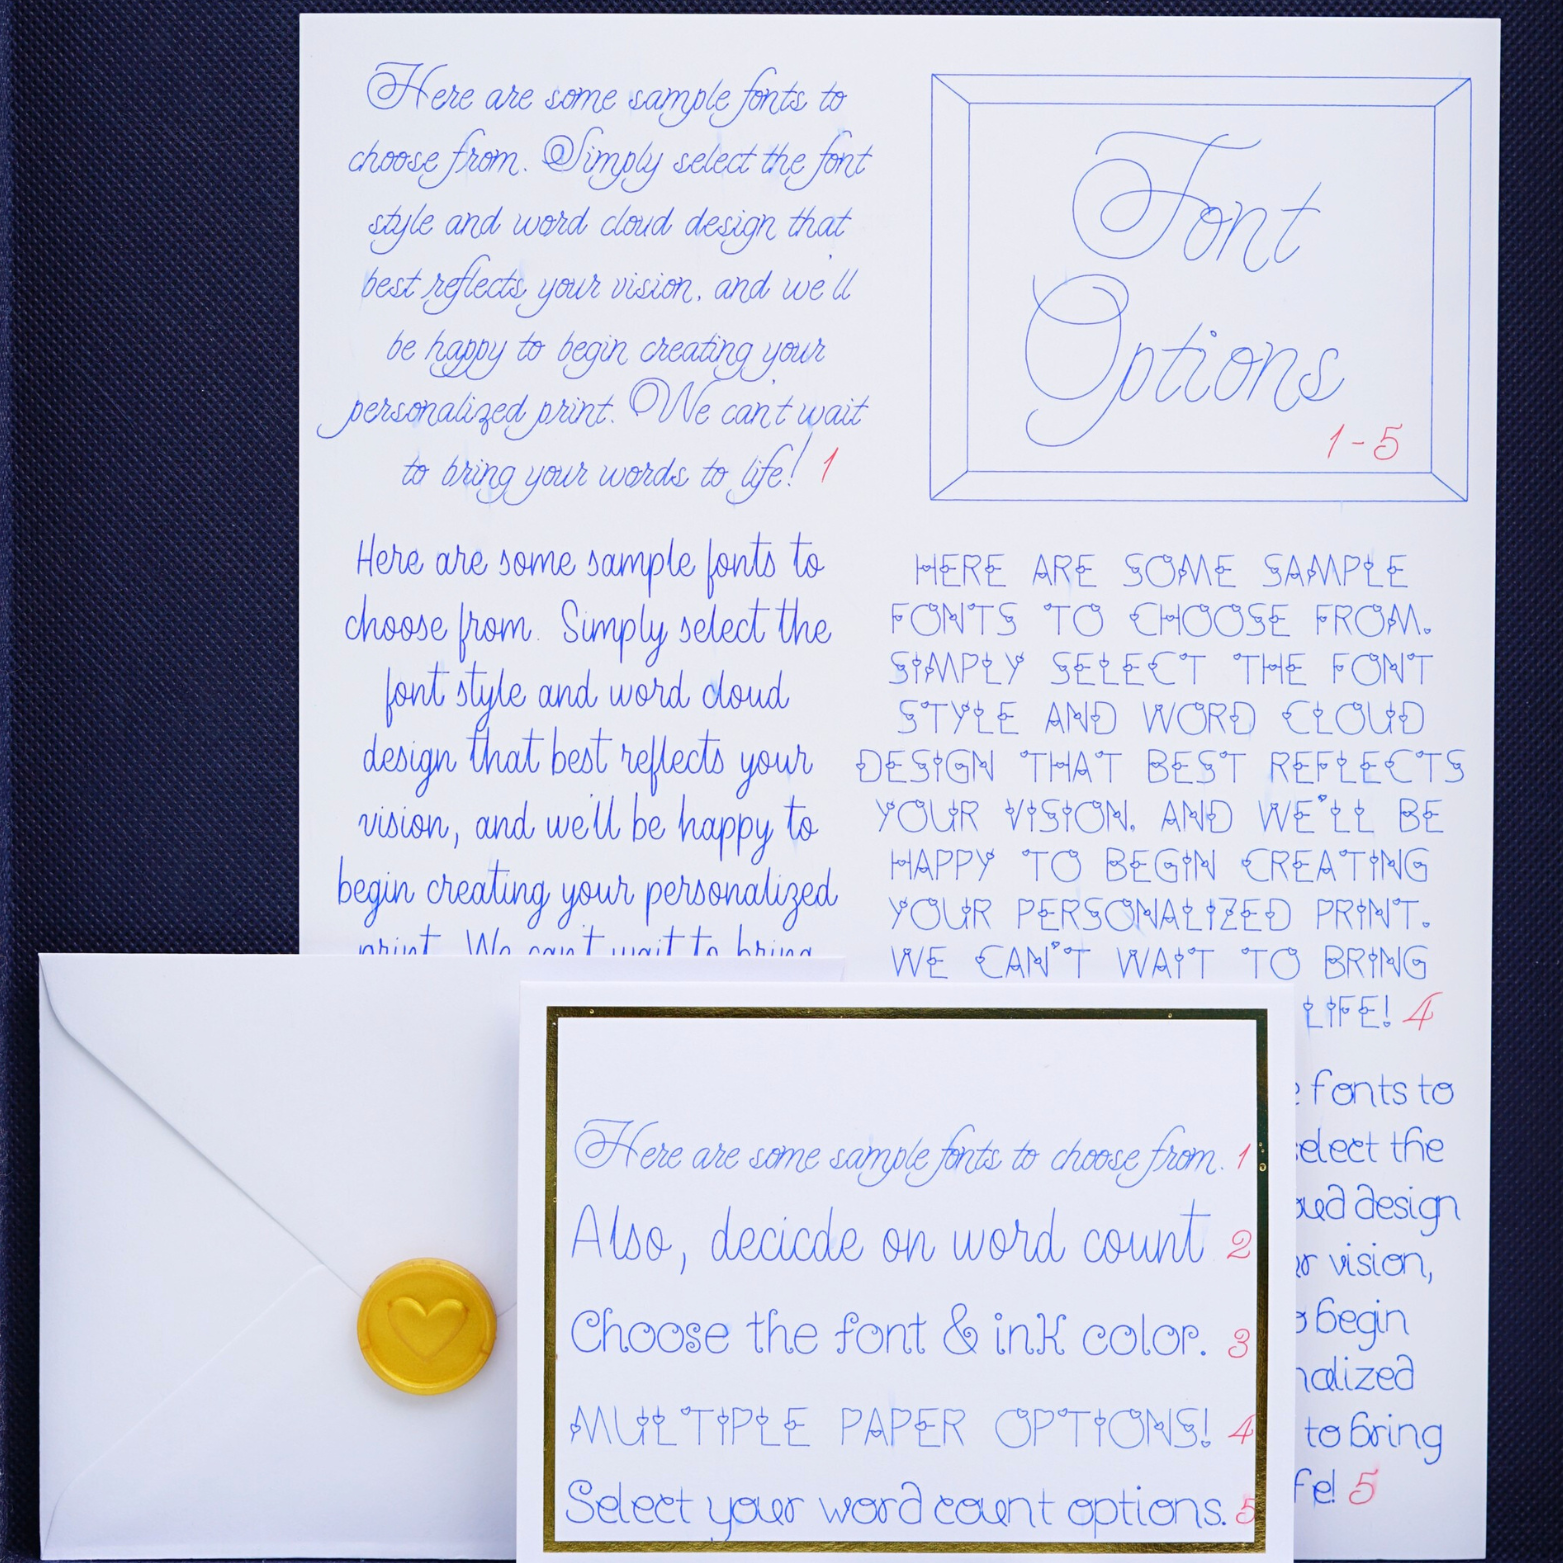 Here are some sample fonts to
choose from. Simply select the font
style and word cloud design that
best reflects your vision, and we'll
be happy to begin creating your
personalized print. We can't wait
to bring your words to life! 1
Here are some sample fonts to
choose from. Simply select the
font style and word cloud
design that best reflects your
vision, and we'll be happy to
begin creating your personalized
print. We can't wait to bring
Font
Options
1-5
HERE ARE SOME SAMPLE
FONTS TO CHOOSE FROM.
SIMPLY SELECT THE FONT
STYLE AND WORD CLOUD
DESIGN THAT BEST REFLECTS
YOUR VISION, AND WE'LL BE
HAPPY TO BEGIN CREATING
YOUR PERSONALIZED PRINT.
WE CAN'T WAIT TO BRING
LIFE! 4
fonts to
select the
design
vision,
begin
to bring
5
Here are some sample fonts to choose from. 1
Also, decicde on word count 2
Choose the font & ink color. 3
MULTIPLE PAPER OPTIONS! 4
Select your word count options. 5